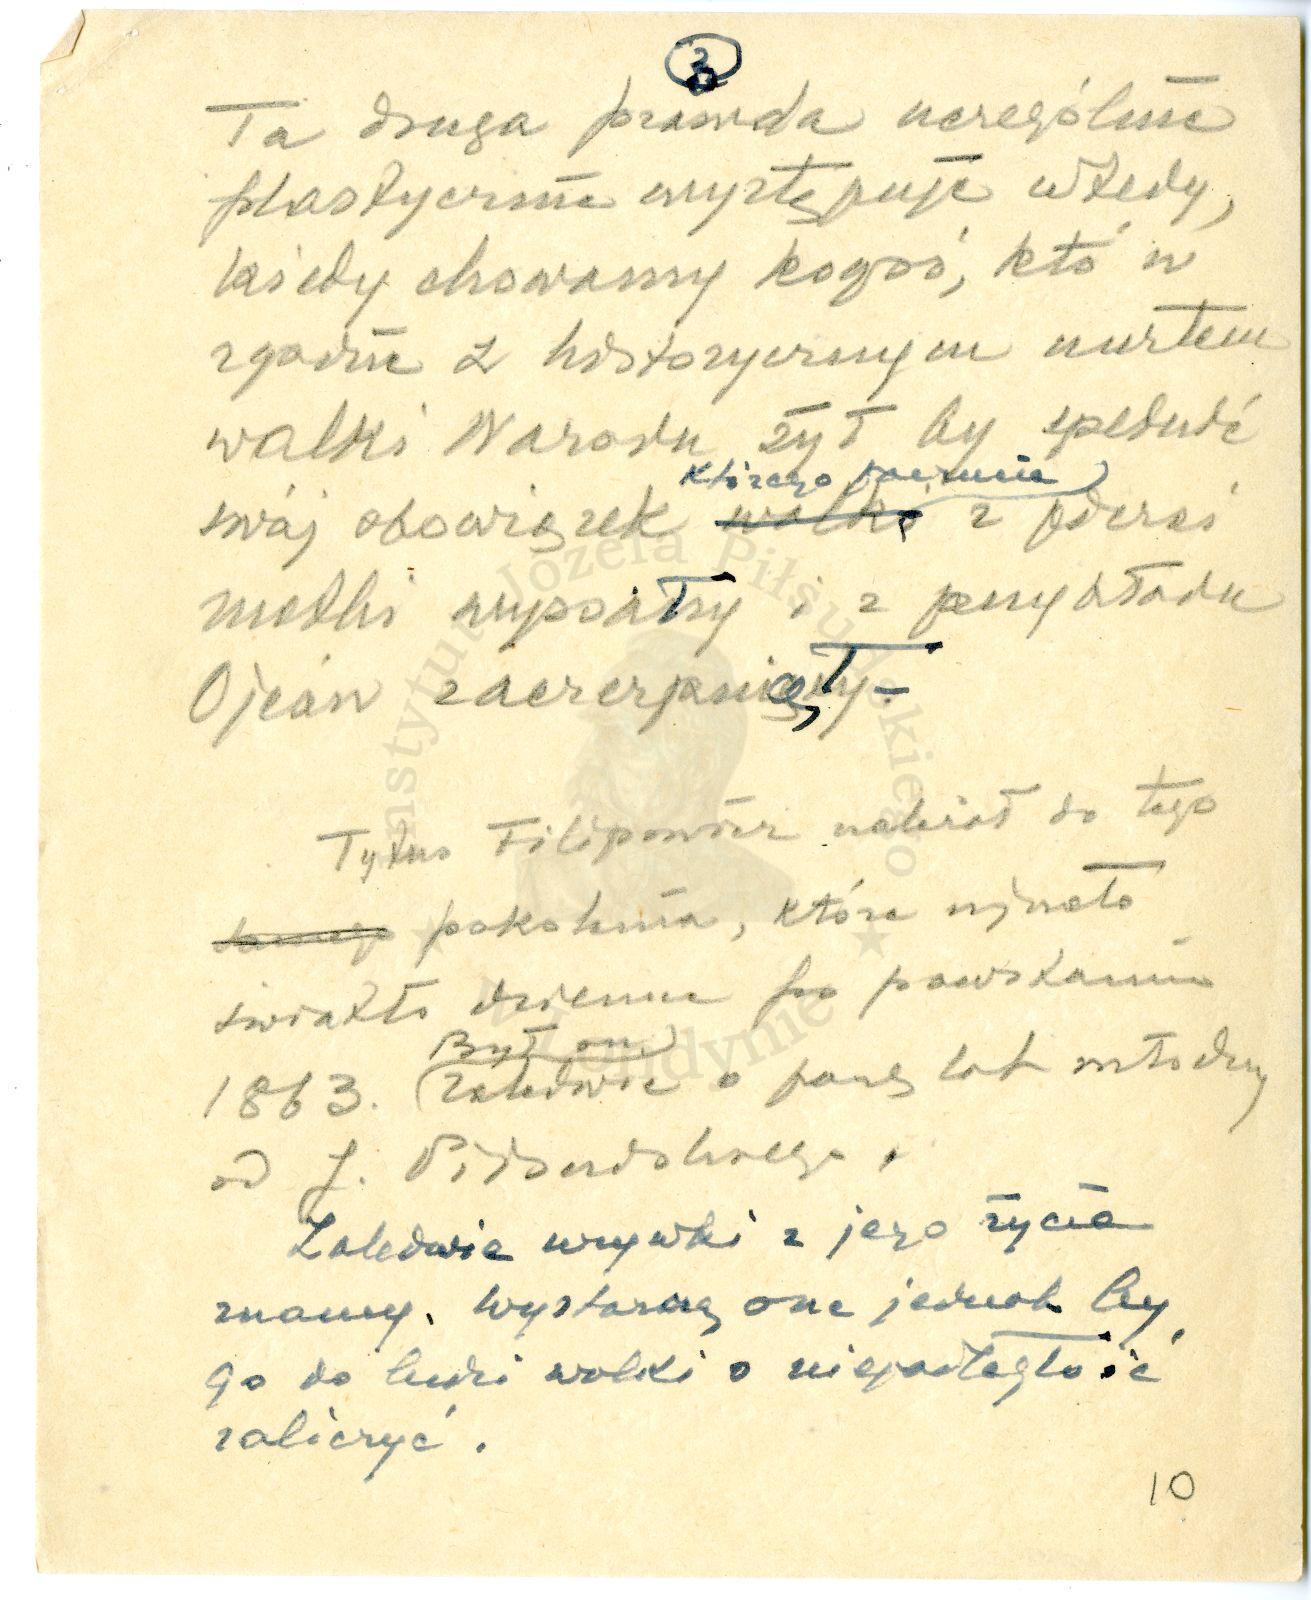 3
Ta druga prawda szczególnie
plastycznie występuje wtedy,
kiedy chowamy kogoś, kto w
zgodzie z historycznym nurtem
walki Narodu żył by spełnić
którego poczucie
swój obowiązek walki z piersi
matki wyssały i z przykładu
Ojców zaczerpnęły.-
Tytus Filipowicz należał do tego
samego pokolenia, które ujrzało
światło dzienne po powstaniu
Był on
1863. zaledwie o parę lat młodszy
od J. Piłsudskiego.
Zaledwie urywki z jego życia
znamy. Wystarczą one jednak by
go do ludzi walki o niepodległość
zaliczyć.
10
Instytut Józefa Piłsudskiego
w Londynie